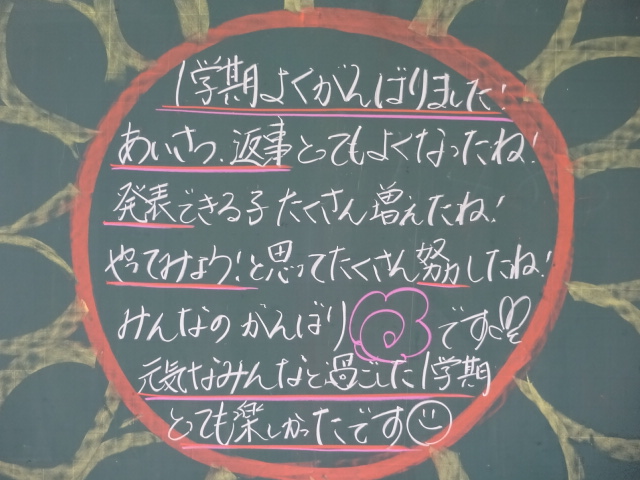 1学期よくがんばりました!
あいさつ、返事とてもよくなったね!
発表できる子たくさん増えたね!
やってみよう!と思ってたくさん努力したね!
みんなのがんばり です
元気なみんなと過ごした1学期
とても楽しかったです